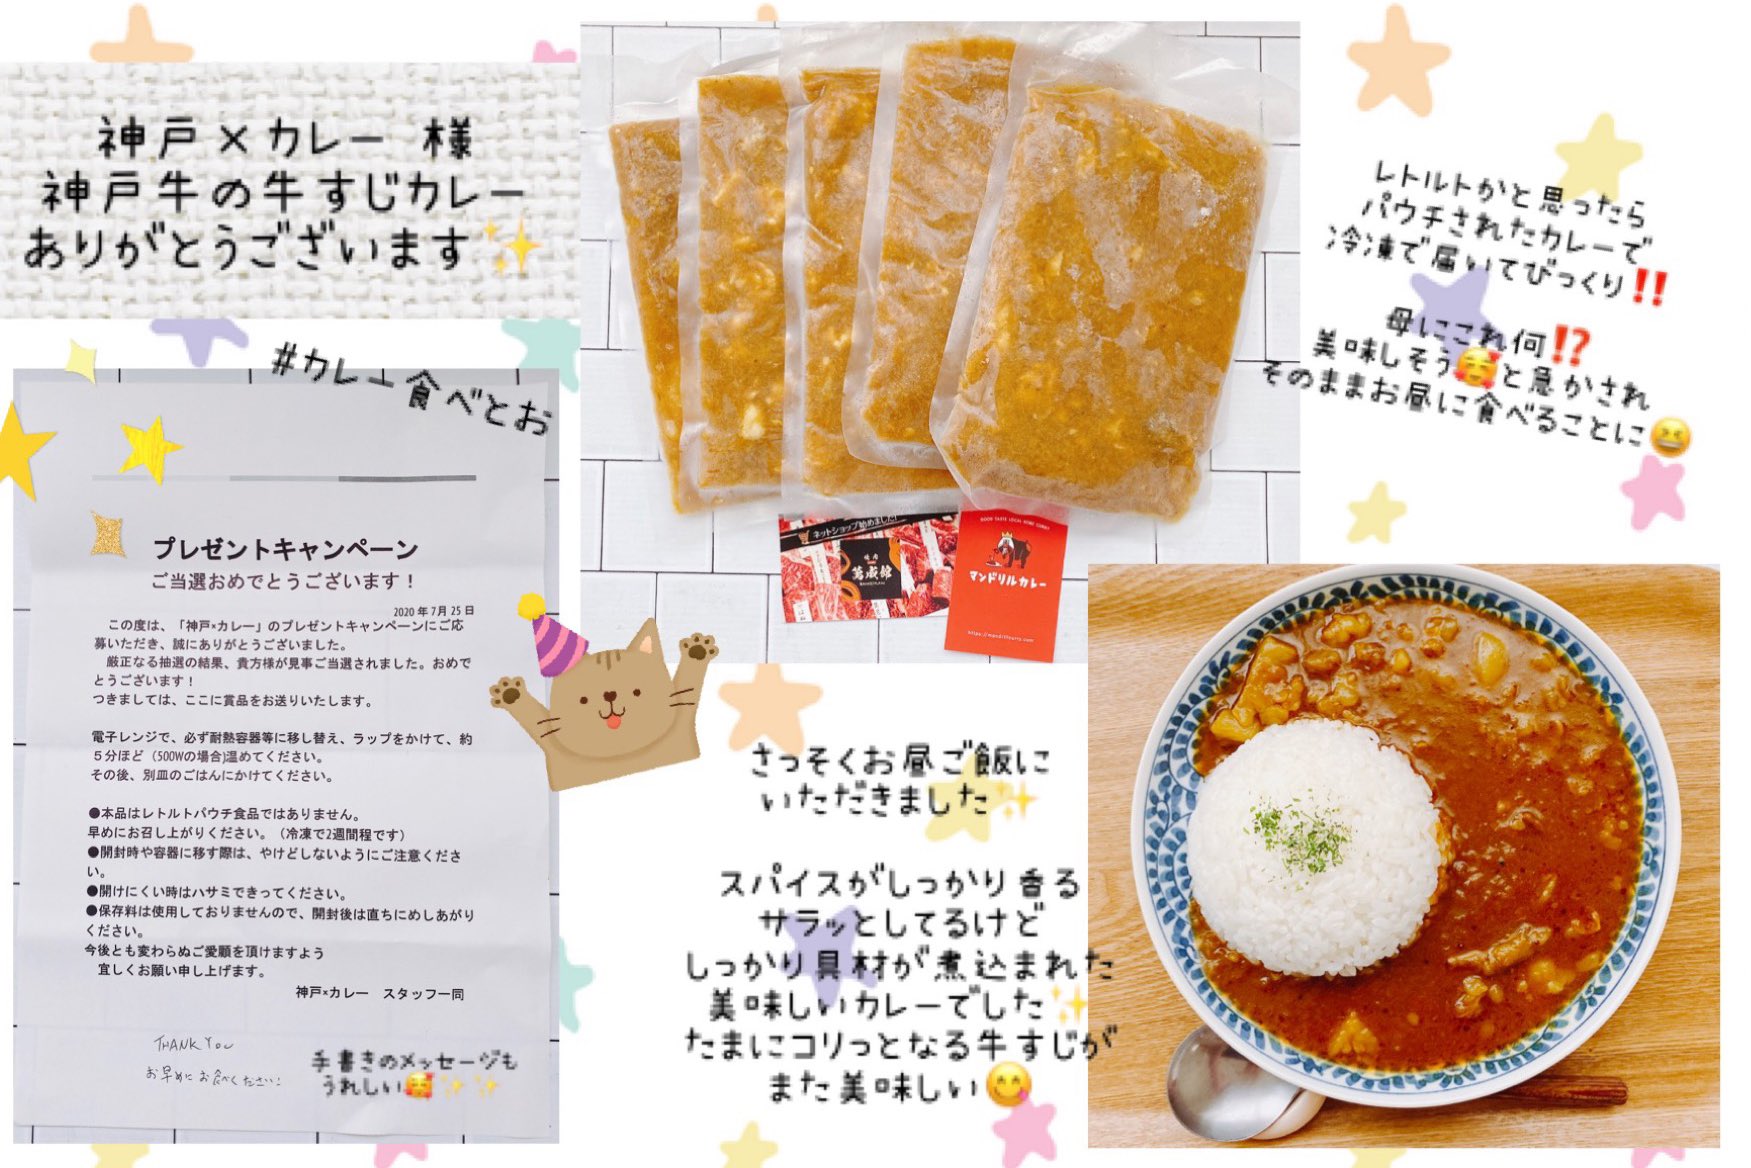 神戸×カレー 様
神戸牛の牛すじカレー
ありがとうございます
#カレー食べとお
プレゼントキャンペーン
ご当選おめでとうございます！
2020年7月25日
この度は、「神戸×カレー」のプレゼントキャンペーンにご応
募いただき、誠にありがとうございました。
厳正なる抽選の結果、貴方様が見事ご当選されました。おめで
とうございます！
つきましては、ここに賞品をお送りいたします。
電子レンジで、必ず耐熱容器等に移し替え、ラップをかけて、約
５分ほど（500Wの場合)温めてください。
その後、別皿のごはんにかけてください。
●本品はレトルトパウチ食品ではありません。
早めにお召し上がりください。（冷凍で2週間程です）
●開封時や容器に移す際は、やけどしないようにご注意くださ
い。
●開けにくい時はハサミできってください。
●保存料は使用しておりませんので、開封後は直ちにめしあがり
ください。
今後とも変わらぬご愛顧を頂けますよう
宜しくお願い申し上げます。
神戸×カレー　スタッフ一同
THANK YOU
お早めにお食べください！
手書きのメッセージも
うれしい🥰✨✨
ネットショップ始めました！
焼肉
萬成館
GOOD TASTE LOCAL KOBE CURRY
マンドリルカレー
レトルトかと思ったら
パウチされたカレーで
冷凍で届いてびっくり‼️
母にこれ何⁉️
美味しそう🥰と急かされ
そのままお昼に食べることに😆
さっそくお昼ご飯に
いただきました✨
スパイスがしっかり香る
サラッとしてるけど
しっかり具材が煮込まれた
美味しいカレーでした✨
たまにコリっとなる牛すじが
また美味しい😋